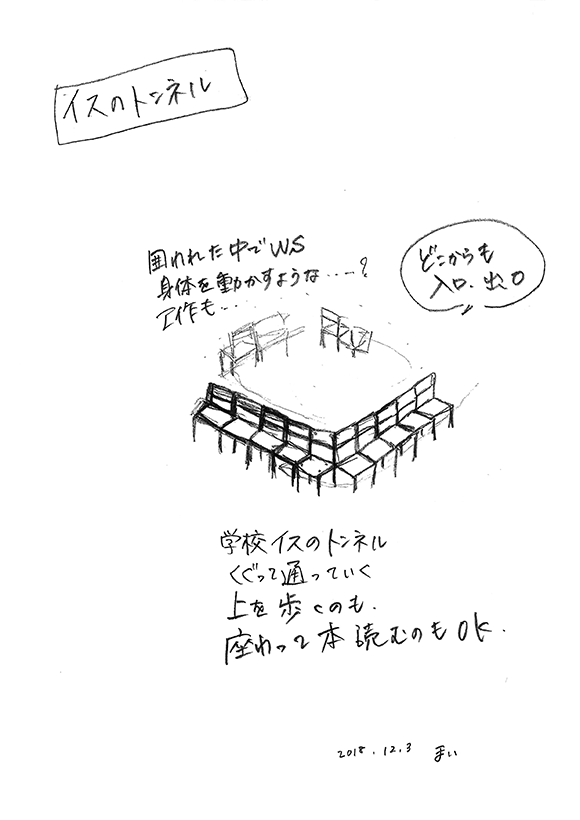 イスのトンネル
囲われた中でWS
身体を動かすような...?
工作も...
どこからも
入口.出口
学校イスのトンネル
くぐって通っていく
上を歩くのも.
座わって本読むのもOK.
2018.12.3 まい